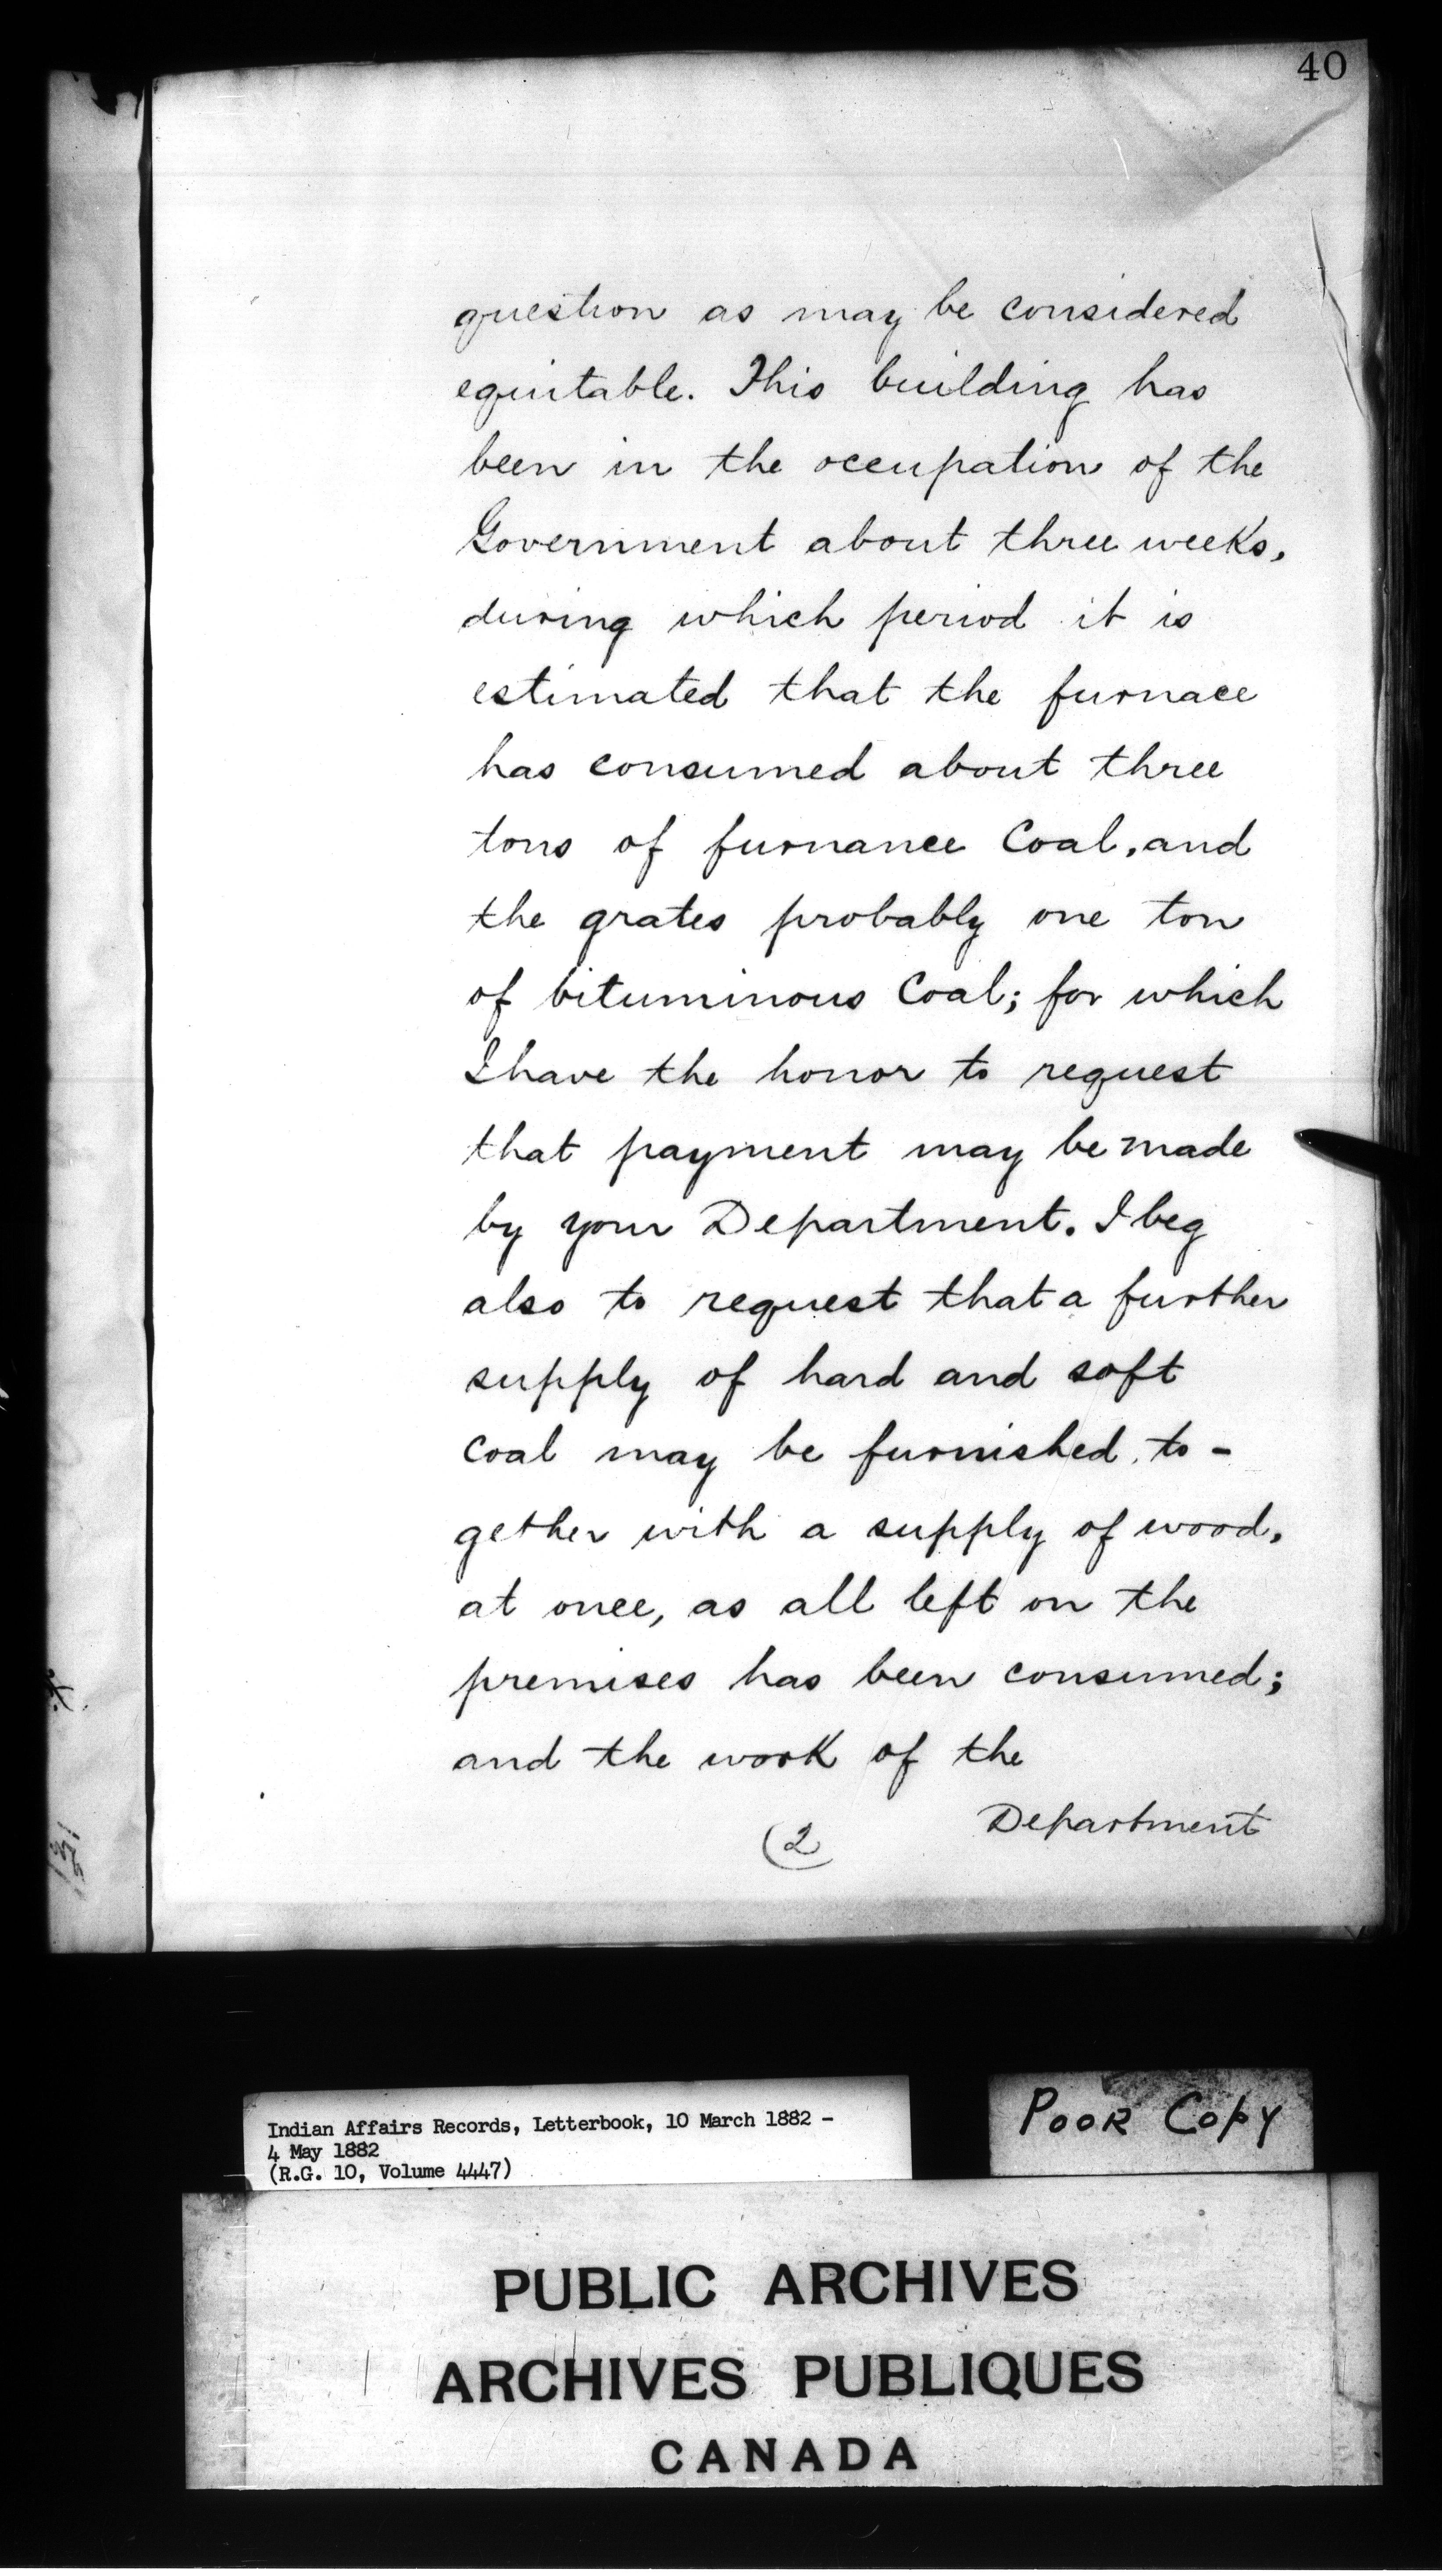 40
question as may be considered
equitable. This building has
been in the occupation of the
Government about three weeks,
during which period it is
estimated that the furnace
has consumed about three
tons of furnance Coal, and
the grates probably one ton
of bituminous Coal; for which
I have the honor to request
that payment may be made
by your Department. I beg
also to request that a further
supply of hard and soft
Coal may be furnished, to-
gether with a supply of wood,
at once, as all left on the
premises has been consumed;
and the work of the
Department
(2
Indian Affairs Records, Letterbook, 10 March 1882 -
4 May 1882
(R.G. 10, Volume 4447)
POOR COPY
PUBLIC ARCHIVES
ARCHIVES PUBLIQUES
CANADA